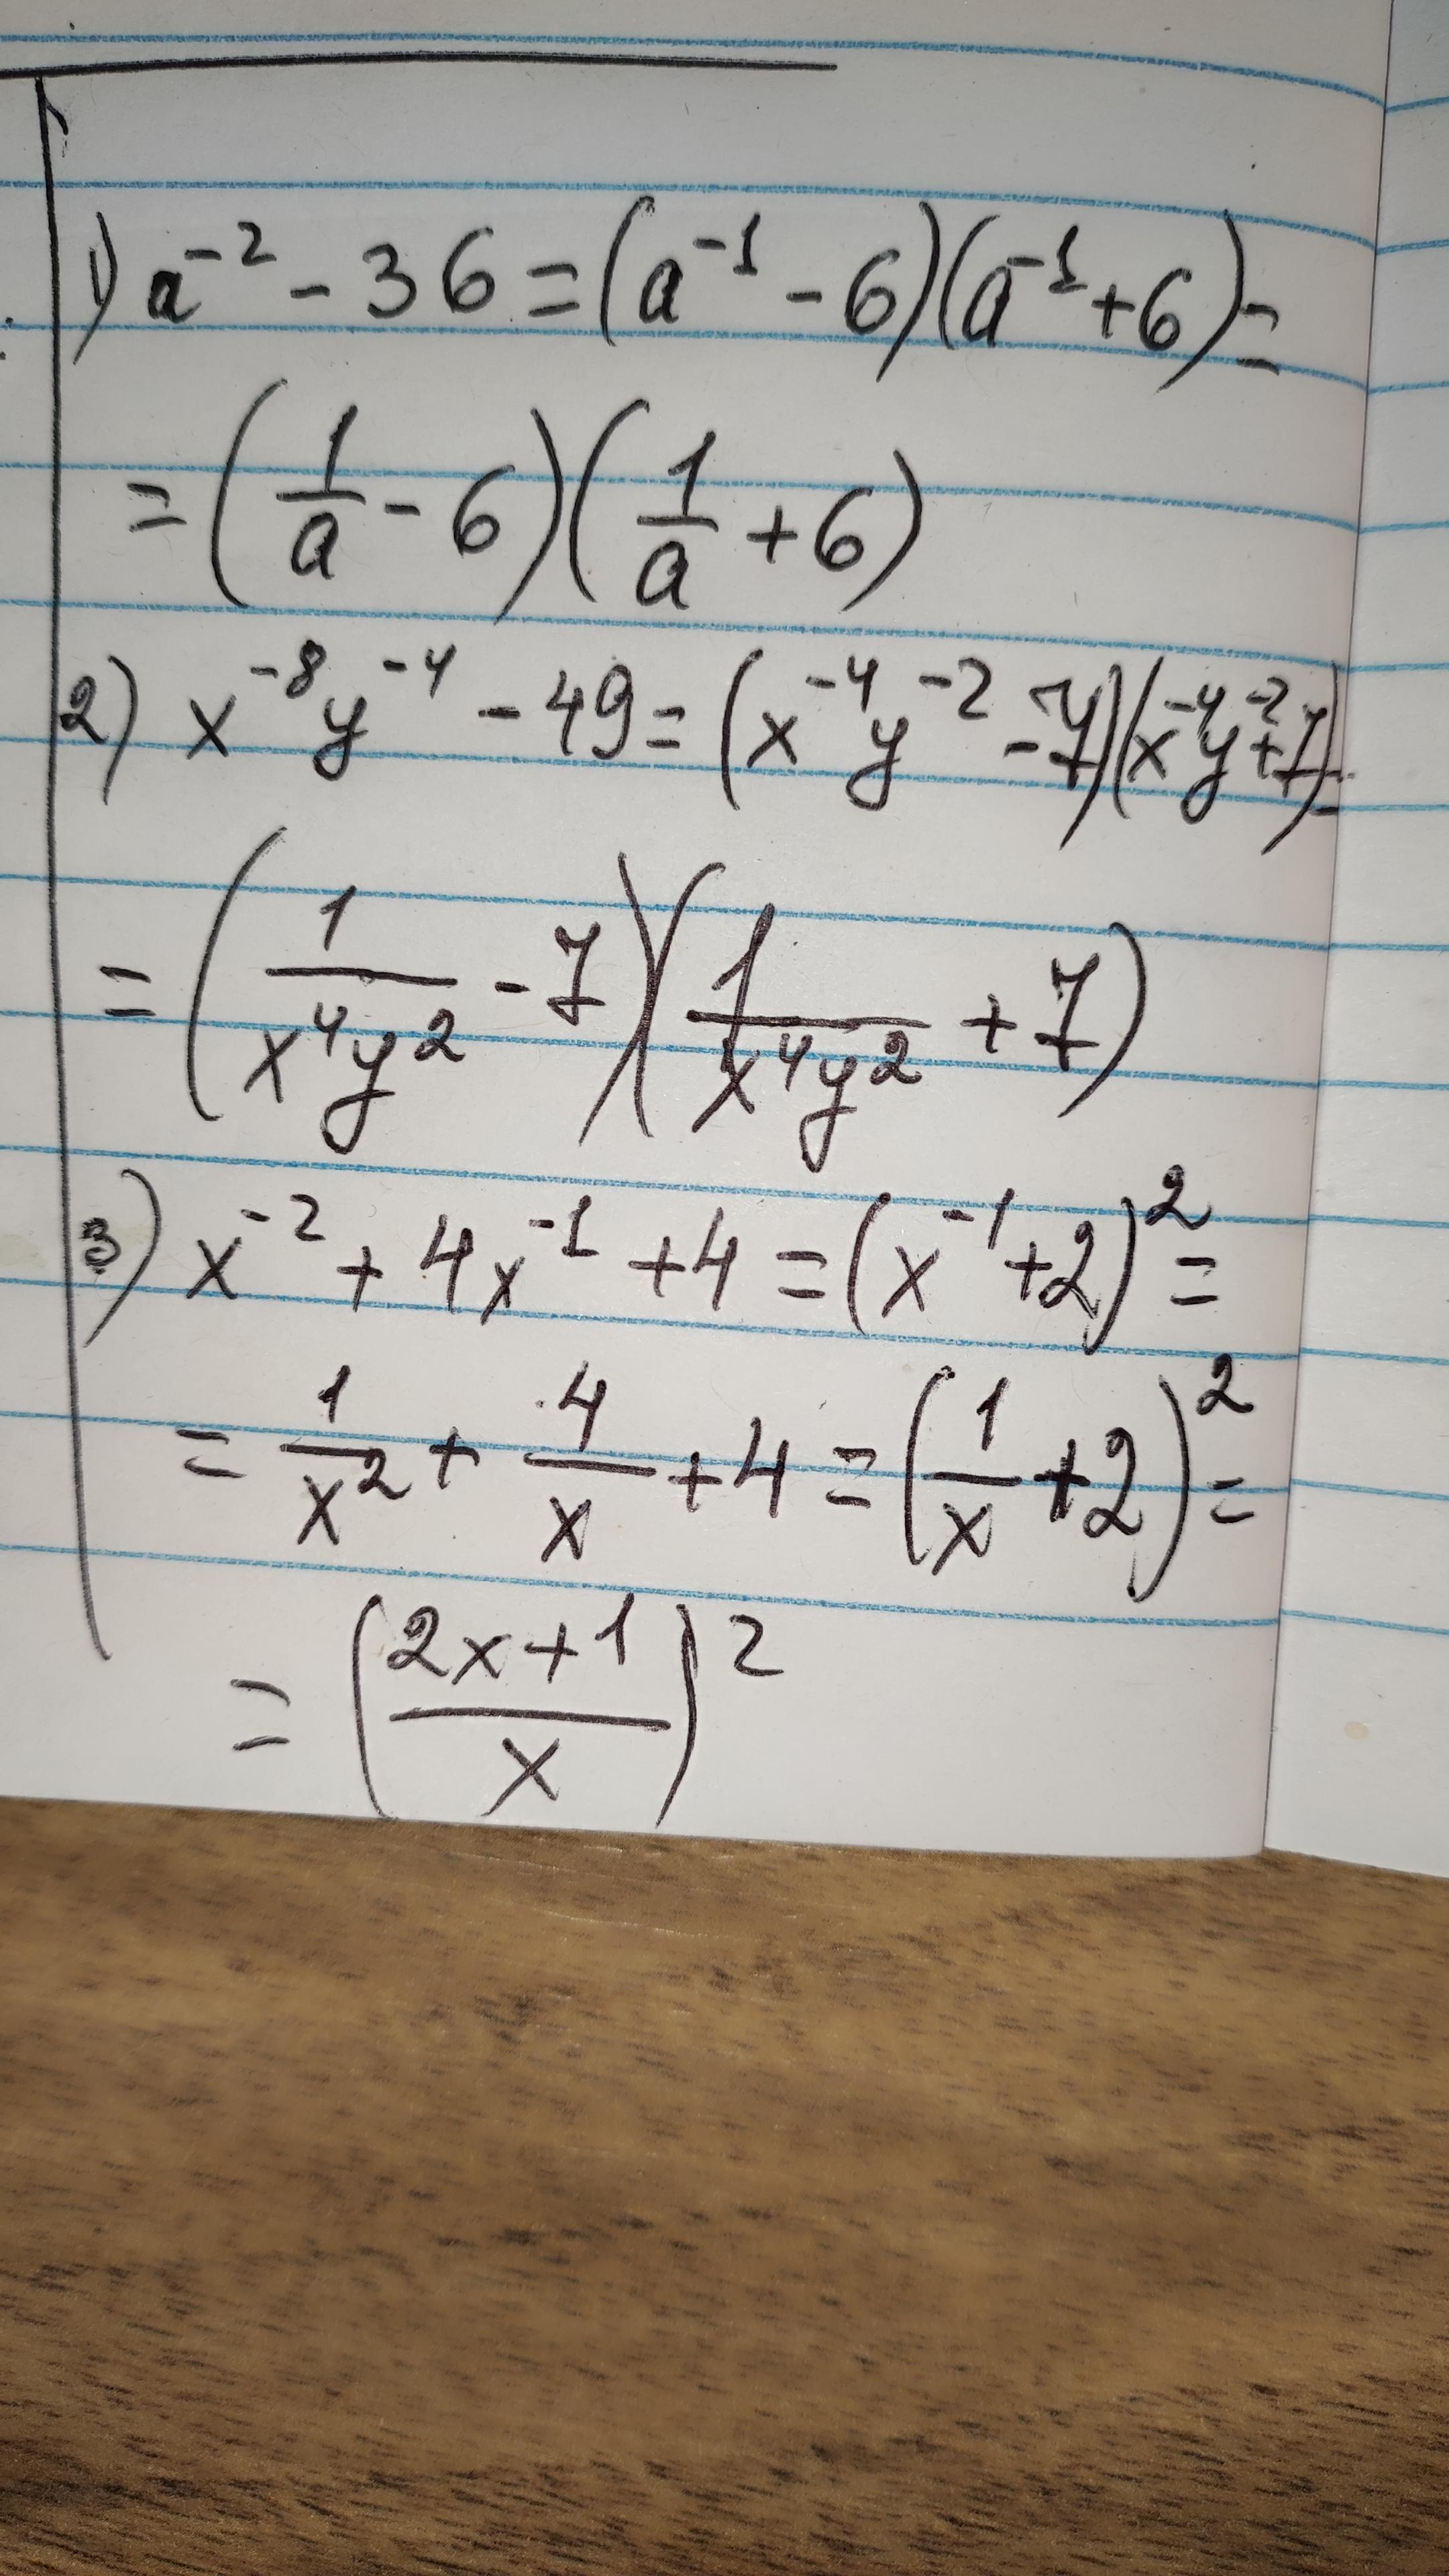 1) a⁻² - 36 = (a⁻¹ - 6)(a⁻¹ + 6) =
= (1/a - 6)(1/a + 6)
2) x⁻⁸y⁻⁴ - 49 = (x⁻⁴y⁻² - 7)(x⁻⁴y⁻² + 7) =
= (1/x⁴y² - 7)(1/x⁴y² + 7)
3) x⁻² + 4x⁻¹ + 4 = (x⁻¹ + 2)² =
= 1/x² + 4/x + 4 = (1/x + 2)² =
= ((2x + 1)/x)²